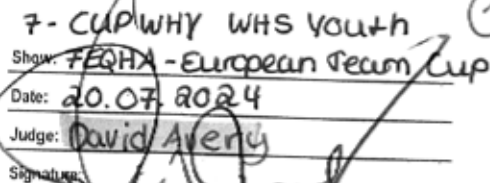 7 - CUP WHY WHS Youth
Show: FEQHA - European Team Cup
Date: 20.07.2024
Judge: David Avery
Signature: